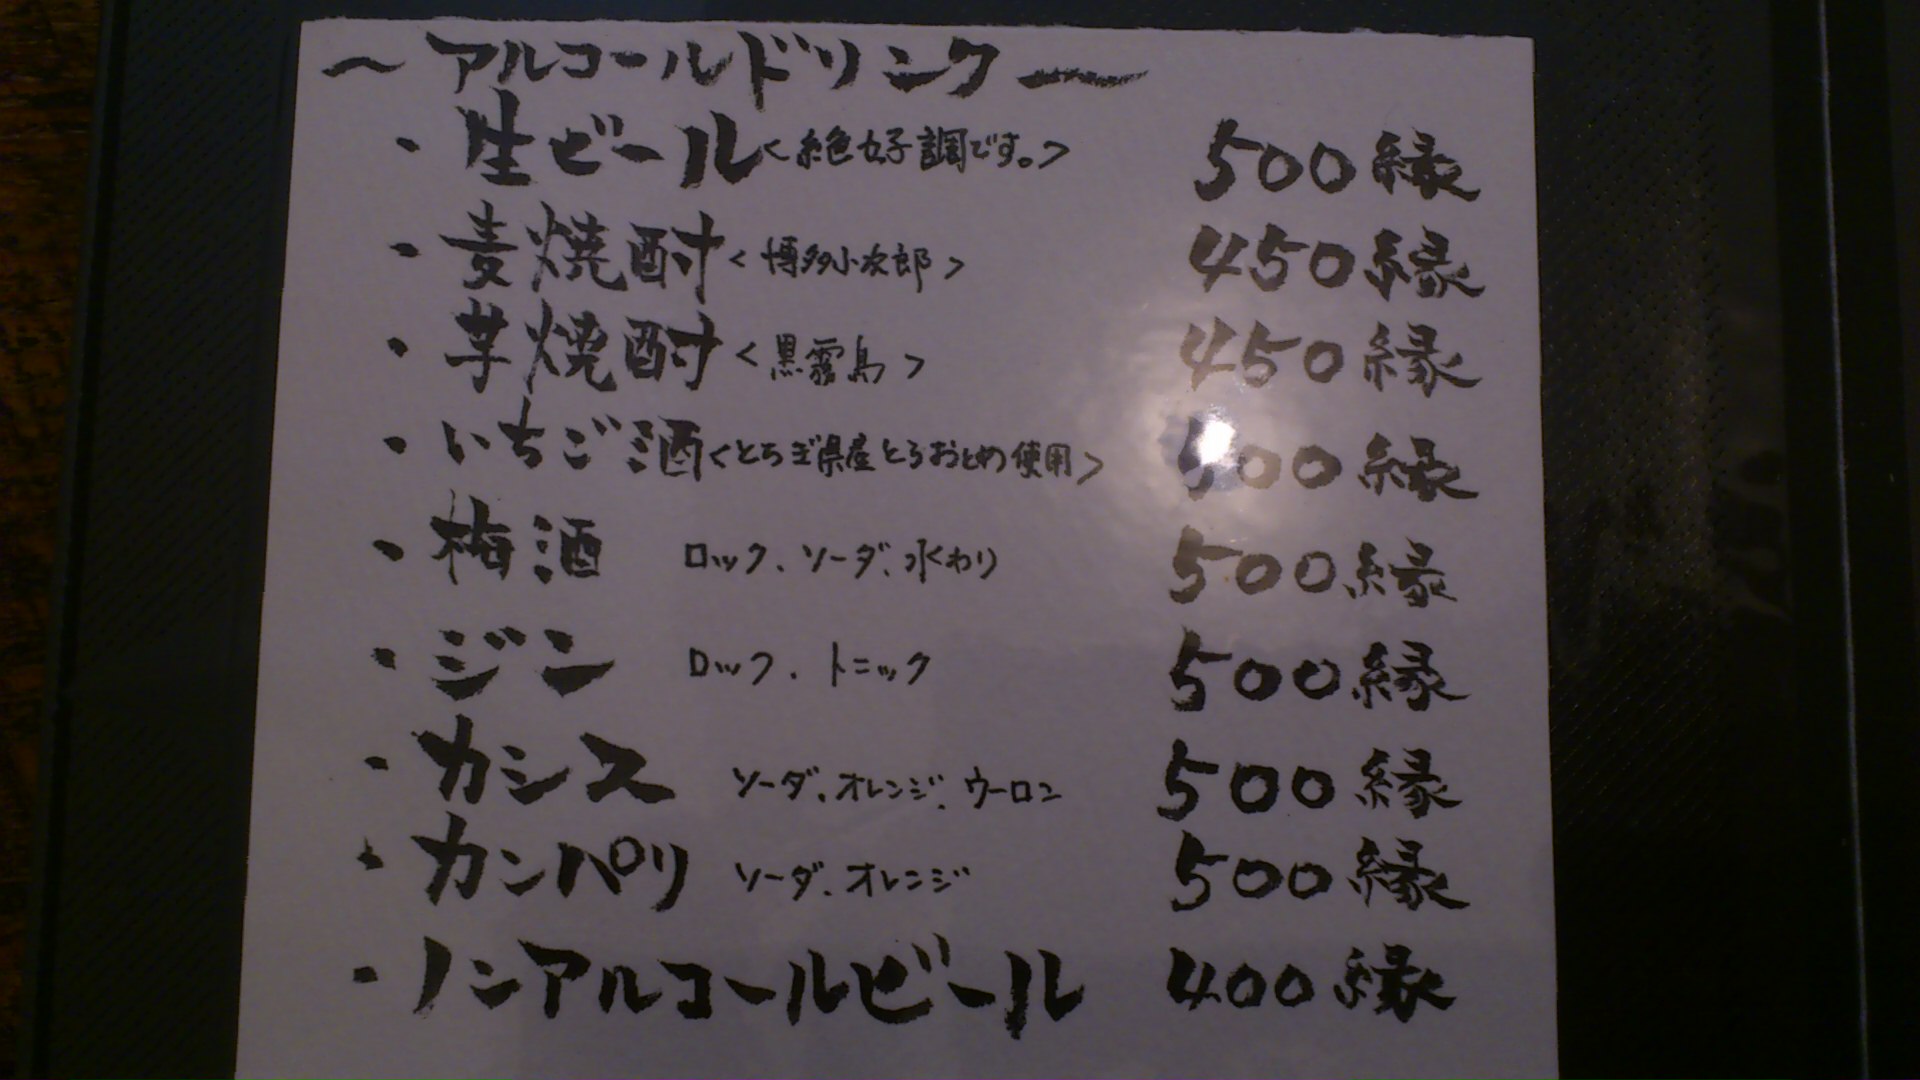 ～アルコールドリンク～
・生ビール<絶好調です。> 500縁
・麦焼酎<博多小次郎> 450縁
・芋焼酎<黒霧島> 450縁
・いちご酒<とちぎ県産とちおとめ使用> 500縁
・梅酒 ロック、ソーダ、水わり 500縁
・ジン ロック、トニック 500縁
・カシス ソーダ、オレンジ、ウーロン 500縁
・カンパリ ソーダ、オレンジ 500縁
・ノンアルコールビール 400縁